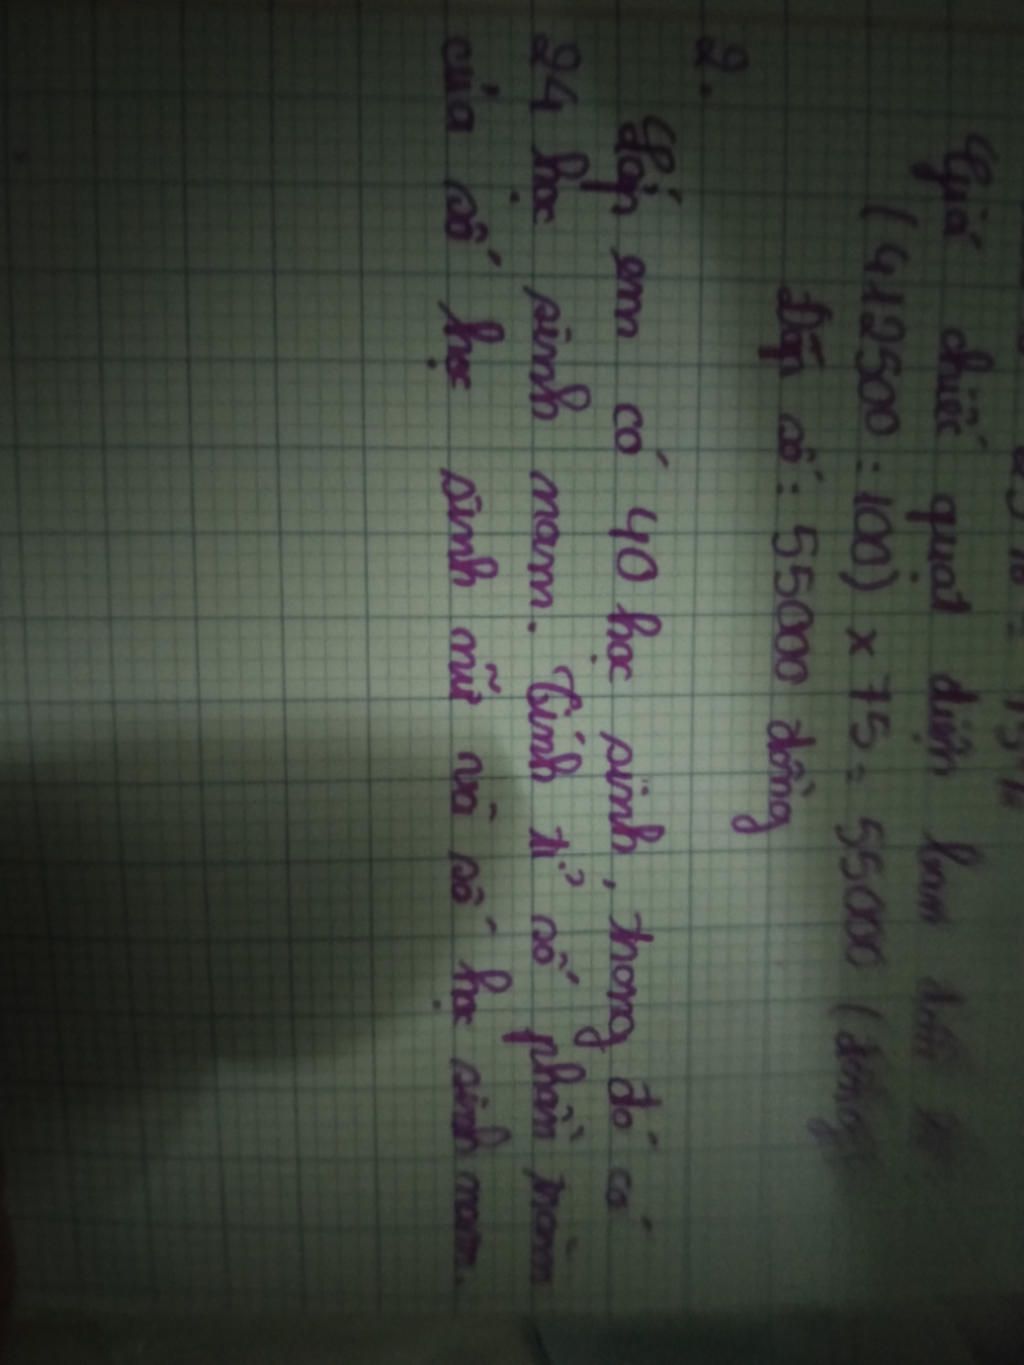 Giá chiếc quạt điện lam
(412500 : 100) x 75 = 55000 (đồng
Đáp số : 55000 đồng
2.
Lớp em có 40 học sinh, trong đó có
24 học sinh nam. Tính tỉ số phần trăm
của số học sinh nữ và số học sinh nam.